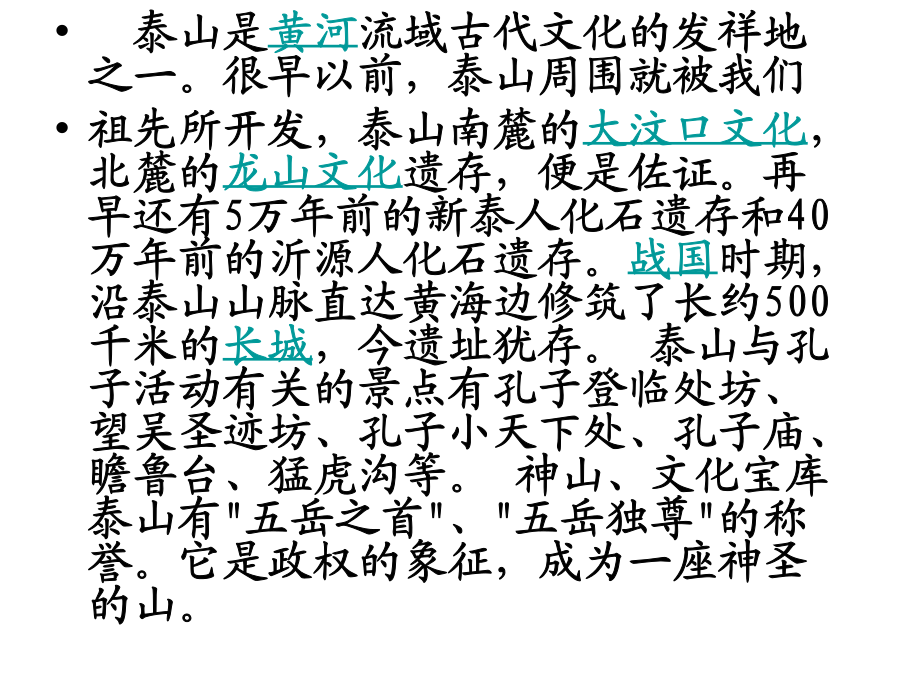 • 泰山是黄河流域古代文化的发祥地
之一。很早以前，泰山周围就被我们
• 祖先所开发，泰山南麓的大汶口文化，
北麓的龙山文化遗存，便是佐证。再
早还有5万年前的新泰人化石遗存和40
万年前的沂源人化石遗存。战国时期，
沿泰山山脉直达黄海边修筑了长约500
千米的长城，今遗址犹存。 泰山与孔
子活动有关的景点有孔子登临处坊、
望吴圣迹坊、孔子小天下处、孔子庙、
瞻鲁台、猛虎沟等。 神山、文化宝库
泰山有"五岳之首"、"五岳独尊"的称
誉。它是政权的象征，成为一座神圣
的山。